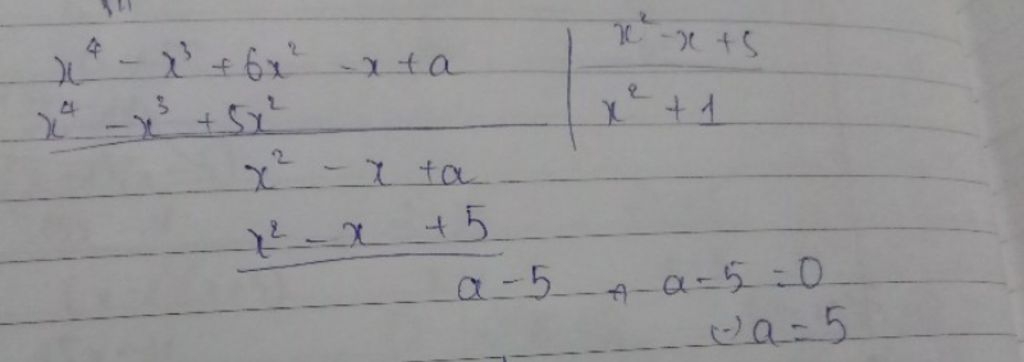 x⁴ - x³ + 6x² - x + a | x² - x + 5
x⁴ - x³ + 5x² | x² + 1
x² - x + a
x² - x + 5
a - 5 → a - 5 = 0
(-) a = 5